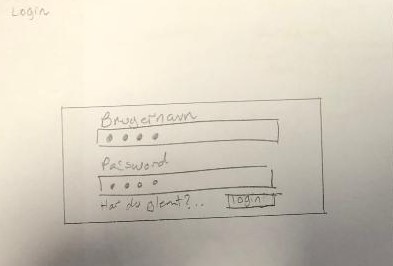 Login
Brugernavn
Password
Har du glemt?..
Login